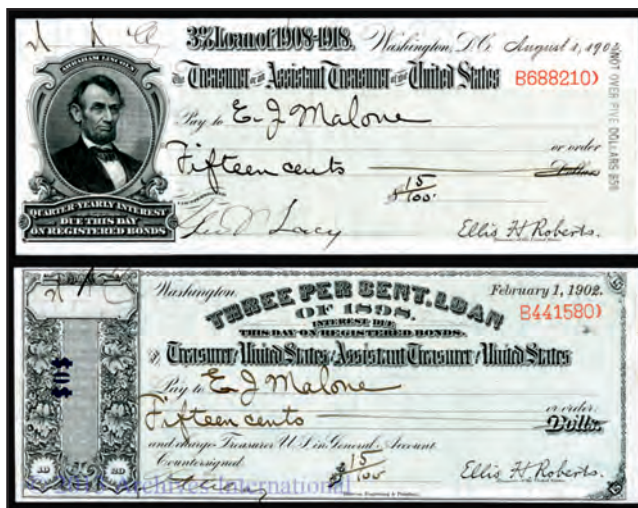 3% Loan of 1908-1918. Washington, D.C. August 1, 190
ABRAHAM LINCOLN
The Treasurer or an Assistant Treasurer of the United States B688210)
NOT OVER FIVE DOLLARS $5$
Pay to E. J Malone
or order
Fifteen cents Dollars
$ 15/100
QUARTER-YEARLY INTEREST
DUE THIS DAY
ON REGISTERED BONDS
Lacy Ellis H Roberts.
Washington, February 1, 1902.
THREE PER CENT. LOAN
OF 1898. B441580)
INTEREST DUE
THIS DAY ON REGISTERED BONDS.
Treasurer United States Assistant Treasurer United States
Pay to E. J Malone
Fifteen cents or order
Dolls.
and charge Treasurer U.S. in General Account.
Countersigned
$ 15/100
Ellis H Roberts.
Archives International